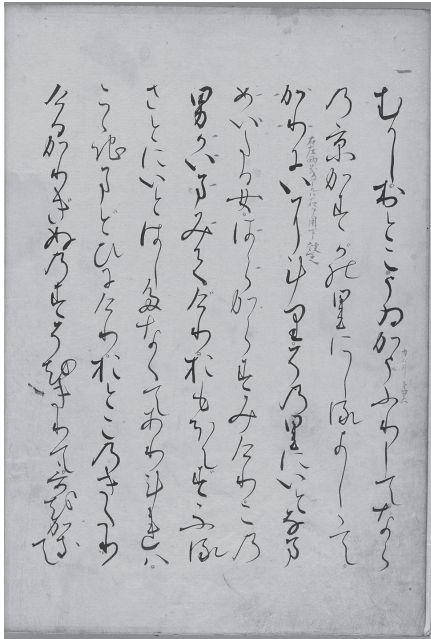 むかしおとこうゐかうふりしてなら
の京かすがの里にしるよしして
かりにいにけりその里にいとなま
めいたる女ばらからすみけりこの
男かいまみてけりおもほえずふる
さとにいとはしたなくてありけれは
こゝ地まどひにけりおとこのきたり
けるかりぎぬのすそをきりて哥をかきて